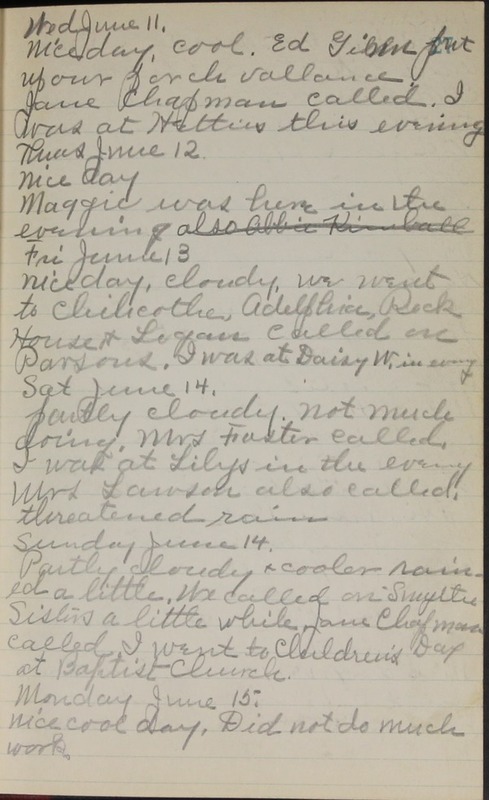 Wed June 11.
Nice day, cool. Ed Gibbs put
up our porch vallance.
Jane Chapman called. I
was at Hatties this evening
Thurs June 12.
Nice day
Maggie was here in the
evening also Abbie Kimball
Fri June 13
nice day, cloudy, we went
to Chilicothe, Adelphia, Rock
House & Logan called on
Parsons. I was at Daisy W. in evng
Sat June 14.
partly cloudy. not much
doing, Mrs Foster called.
I was at Lilys in the eveng
Mrs Lawson also called.
threatened rain
Sunday June 14.
Partly cloudy & cooler rain-
ed a little. We called on
Sisters a little while, Jane Chapman
called. I went to Children's Day
at Baptist Church.
Monday June 15.
nice cool day. Did not do much
work.